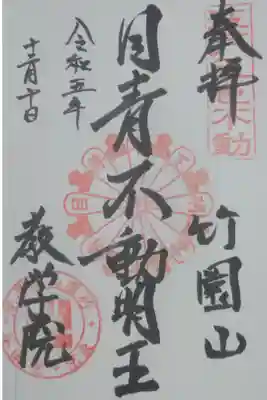 奉拝
竹園山
目青不動明王
令和五年
十二月十日
教学院